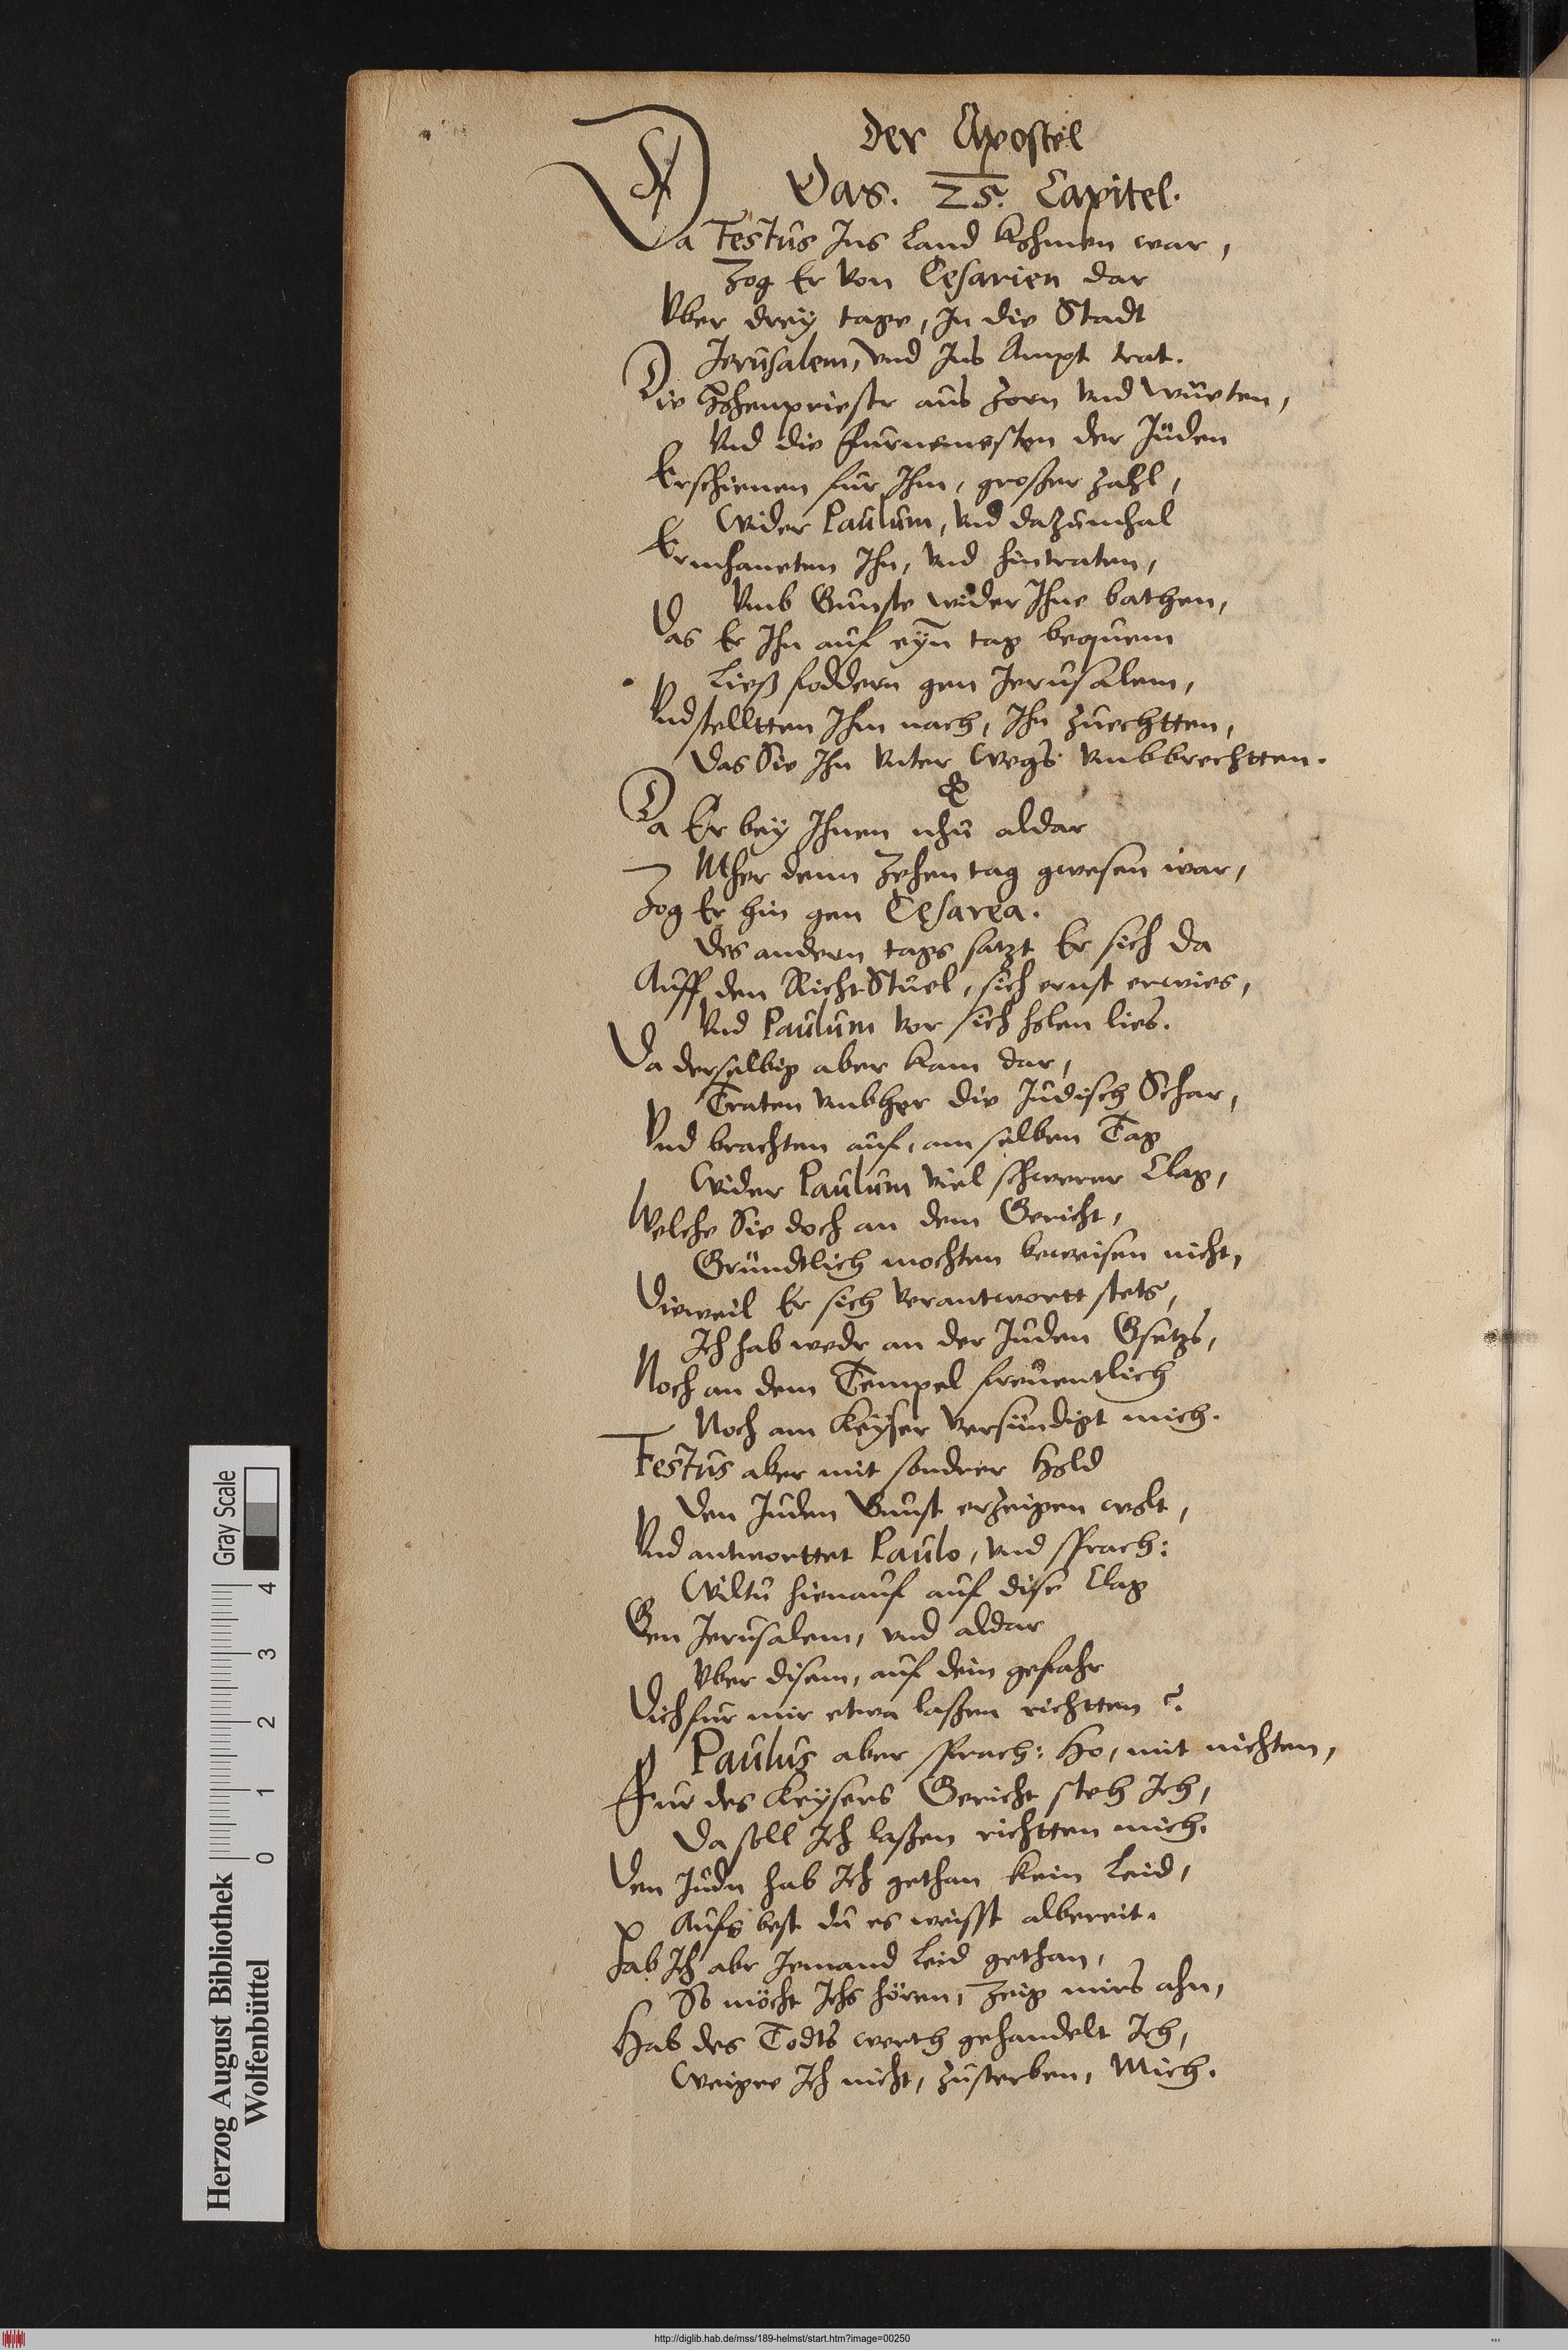 Der Apostel
Das. 25. Capitel.
Da Festus Ins Land kohmen war,
Zog Er von Cesarien dar
Vber drey tage, In die Stadt
Jerusalem, vnd Ins Ampt trat.
Die Hohenpriestr aus zorn vnd wueten,
Vnd die Furnemesten der Jüden
Erschienen fur Ihm, großer zahl,
Wider Paulum, vnd dazumhal
Ermhaneten Ihn, vnd hintraten,
Vmb Gunste wider Ihne bathen,
Das Er Ihn auf eyn tag bequem
Ließ foddern gen Jerusalem,
Vnd stelltten Ihm nach, Ihn zuechtten,
Das Sie Ihn vnter wegs vmbbrechtten.
Da Er bey Ihnen nhu aldar
Mher denn zehen tag gwesen war,
Zog Er hin gen Cesarea.
Des andern tags satzt Er sich da
Auff den RichtStuel, sich ernst erwies,
Vnd Paulum vor sich holen lies.
Da derselbig aber kam dar,
Traten vmbher die Judisch Schar,
Vnd brachten auf, am selben Tag
Wider Paulum viel schwerer Clag,
Welche Sie doch an dem Gericht,
Gründtlich mochten beweisen nicht,
Dieweil Er sich verantwortt stets,
Ich hab wedr an der Juden Gsetzs,
Noch an dem Tempel freuentlich
Noch am Keyser versündigt mich.
Festus aber mit sondrer Hold
Den Juden Gunst erzeigen wolt,
Vnd antworttet Paulo, vnd sprach:
Wiltu hienauf auf dise Clag
Gen Jerusalem, vnd aldar
Vber disem, auf dein gefahr
Dich fur mir etwa laßen richtten?
Paulus aber sprach: Ho, mit nichten,
Fur des Keysers Gericht steh Ich,
Da soll Ich laßen richtten mich.
Den Judn hab Ich gethan kein Leid,
Aufs best du es weisst albereit.
Hab Ich abr Jemand leid gethan,
So möcht Ichs hören, Zeig mirs ahn,
Hab des Todts werth gehandelt Ich,
Weiger Ich nicht, zusterben, Mich.
Herzog August Bibliothek
Wolfenbüttel
0 1 2 3 4
Gray Scale
http://diglib.hab.de/mss/189-helmst/start.htm?image=00250